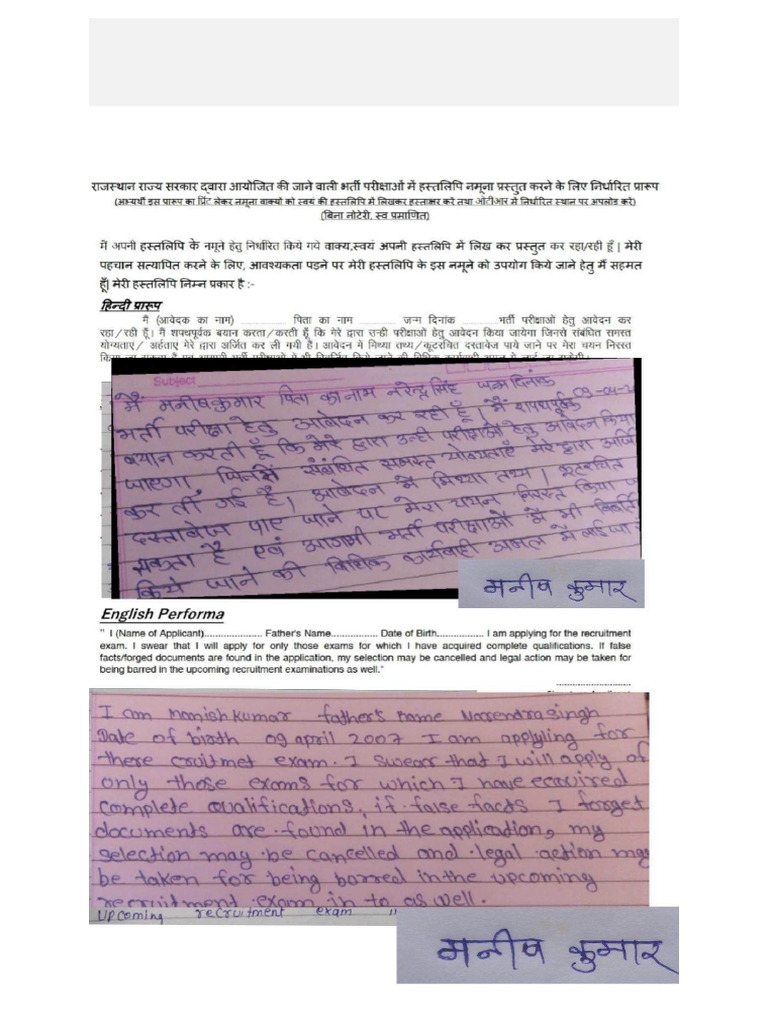 राजस्थान राज्य सरकार द्वारा आयोजित की जाने वाली भर्ती परीक्षाओं में हस्तलिपि नमूना प्रस्तुत करने के लिए निर्धारित प्रारूप
(अभ्यर्थी इस प्रारूप का प्रिंट लेकर नमूना वाक्यों को स्वयं की हस्तलिपि में लिखकर हस्ताक्षर करें तथा ओटीआर में निर्धारित स्थान पर अपलोड करें)
(बिना नोटेरी, स्व प्रमाणित)
में अपनी हस्तलिपि के नमूने हेतु निर्धारित किये गये वाक्य,स्वयं अपनी हस्तलिपि में लिख कर प्रस्तुत कर रहा/रही हूँ | मेरी
पहचान सत्यापित करने के लिए, आवश्यकता पड़ने पर मेरी हस्तलिपि के इस नमूने को उपयोग किये जाने हेतु मैं सहमत
हूँ| मेरी हस्तलिपि निम्न प्रकार है :-
हिन्दी प्रारूप
मैं (आवेदक का नाम) .............. पिता का नाम .............. जन्म दिनांक .............. भर्ती परीक्षाओं हेतु आवेदन कर
रहा/रही हूँ। मैं शपथपूर्वक बयान करता/करती हूँ कि मेरे द्वारा उन्ही परीक्षाओं हेतु आवेदन किया जायेगा जिनसे संबंधित समस्त
योग्यताए/ अर्हताए मेरे द्वारा अर्जित कर ली गयी है। आवेदन में मिथ्या तथ्य/कूटरचित दस्तावेज पाये जाने पर मेरा चयन निरस्त
किया जा सकता है एवं आगामी भर्ती परीक्षाओं में भी विवर्जित किये जाने की विधिक कार्यवाही अमल में लाई जा सकेगी।
Subject
मैं मनीषकुमार पिता का नाम नरेन्द्र सिंह जन्म दिनांक 09-04-2
भर्ती परीक्षा हेतु आवेदन कर रही हूँ। मैं शपथपूर्वक
बयान करती हूँ कि मेरे द्वारा उन्ही परीक्षाओं हेतु आवेदन किया
जाएगा जिनसे संबंधित समस्त योग्यताएँ मेरे द्वारा अर्जि
कर ली गई है। आवेदन में मिथ्या तथ्य / कूटरचित
दस्तावेज पाए जाने पर मेरा चयन निरस्त किया जा
सकता है एवं आगामी भर्ती परीक्षाओं में भी विवर्जि
किये जाने की विधिक कार्यवाही अमल में लाई जा स
मनीष कुमार
English Performa
" I (Name of Applicant)..................... Father's Name................. Date of Birth................. I am applying for the recruitment
exam. I swear that I will apply for only those exams for which I have acquired complete qualifications. If false
facts/forged documents are found in the application, my selection may be cancelled and legal action may be taken for
being barred in the upcoming recruitment examinations as well."
I am Manish kumar father's name Narendra singh
Date of birth 09 april 2007 I am applying for
there cruitmet exam. I swear that I will apply of
only those exams for which I have ecavired
complete qualifications, if false facts I forget
documents are found in the application, my
selection may be cancelled and legal action may
be taken for being barred in the upcoming
recruitment exam in to as well.
upcoming recruitment exam
मनीष कुमार